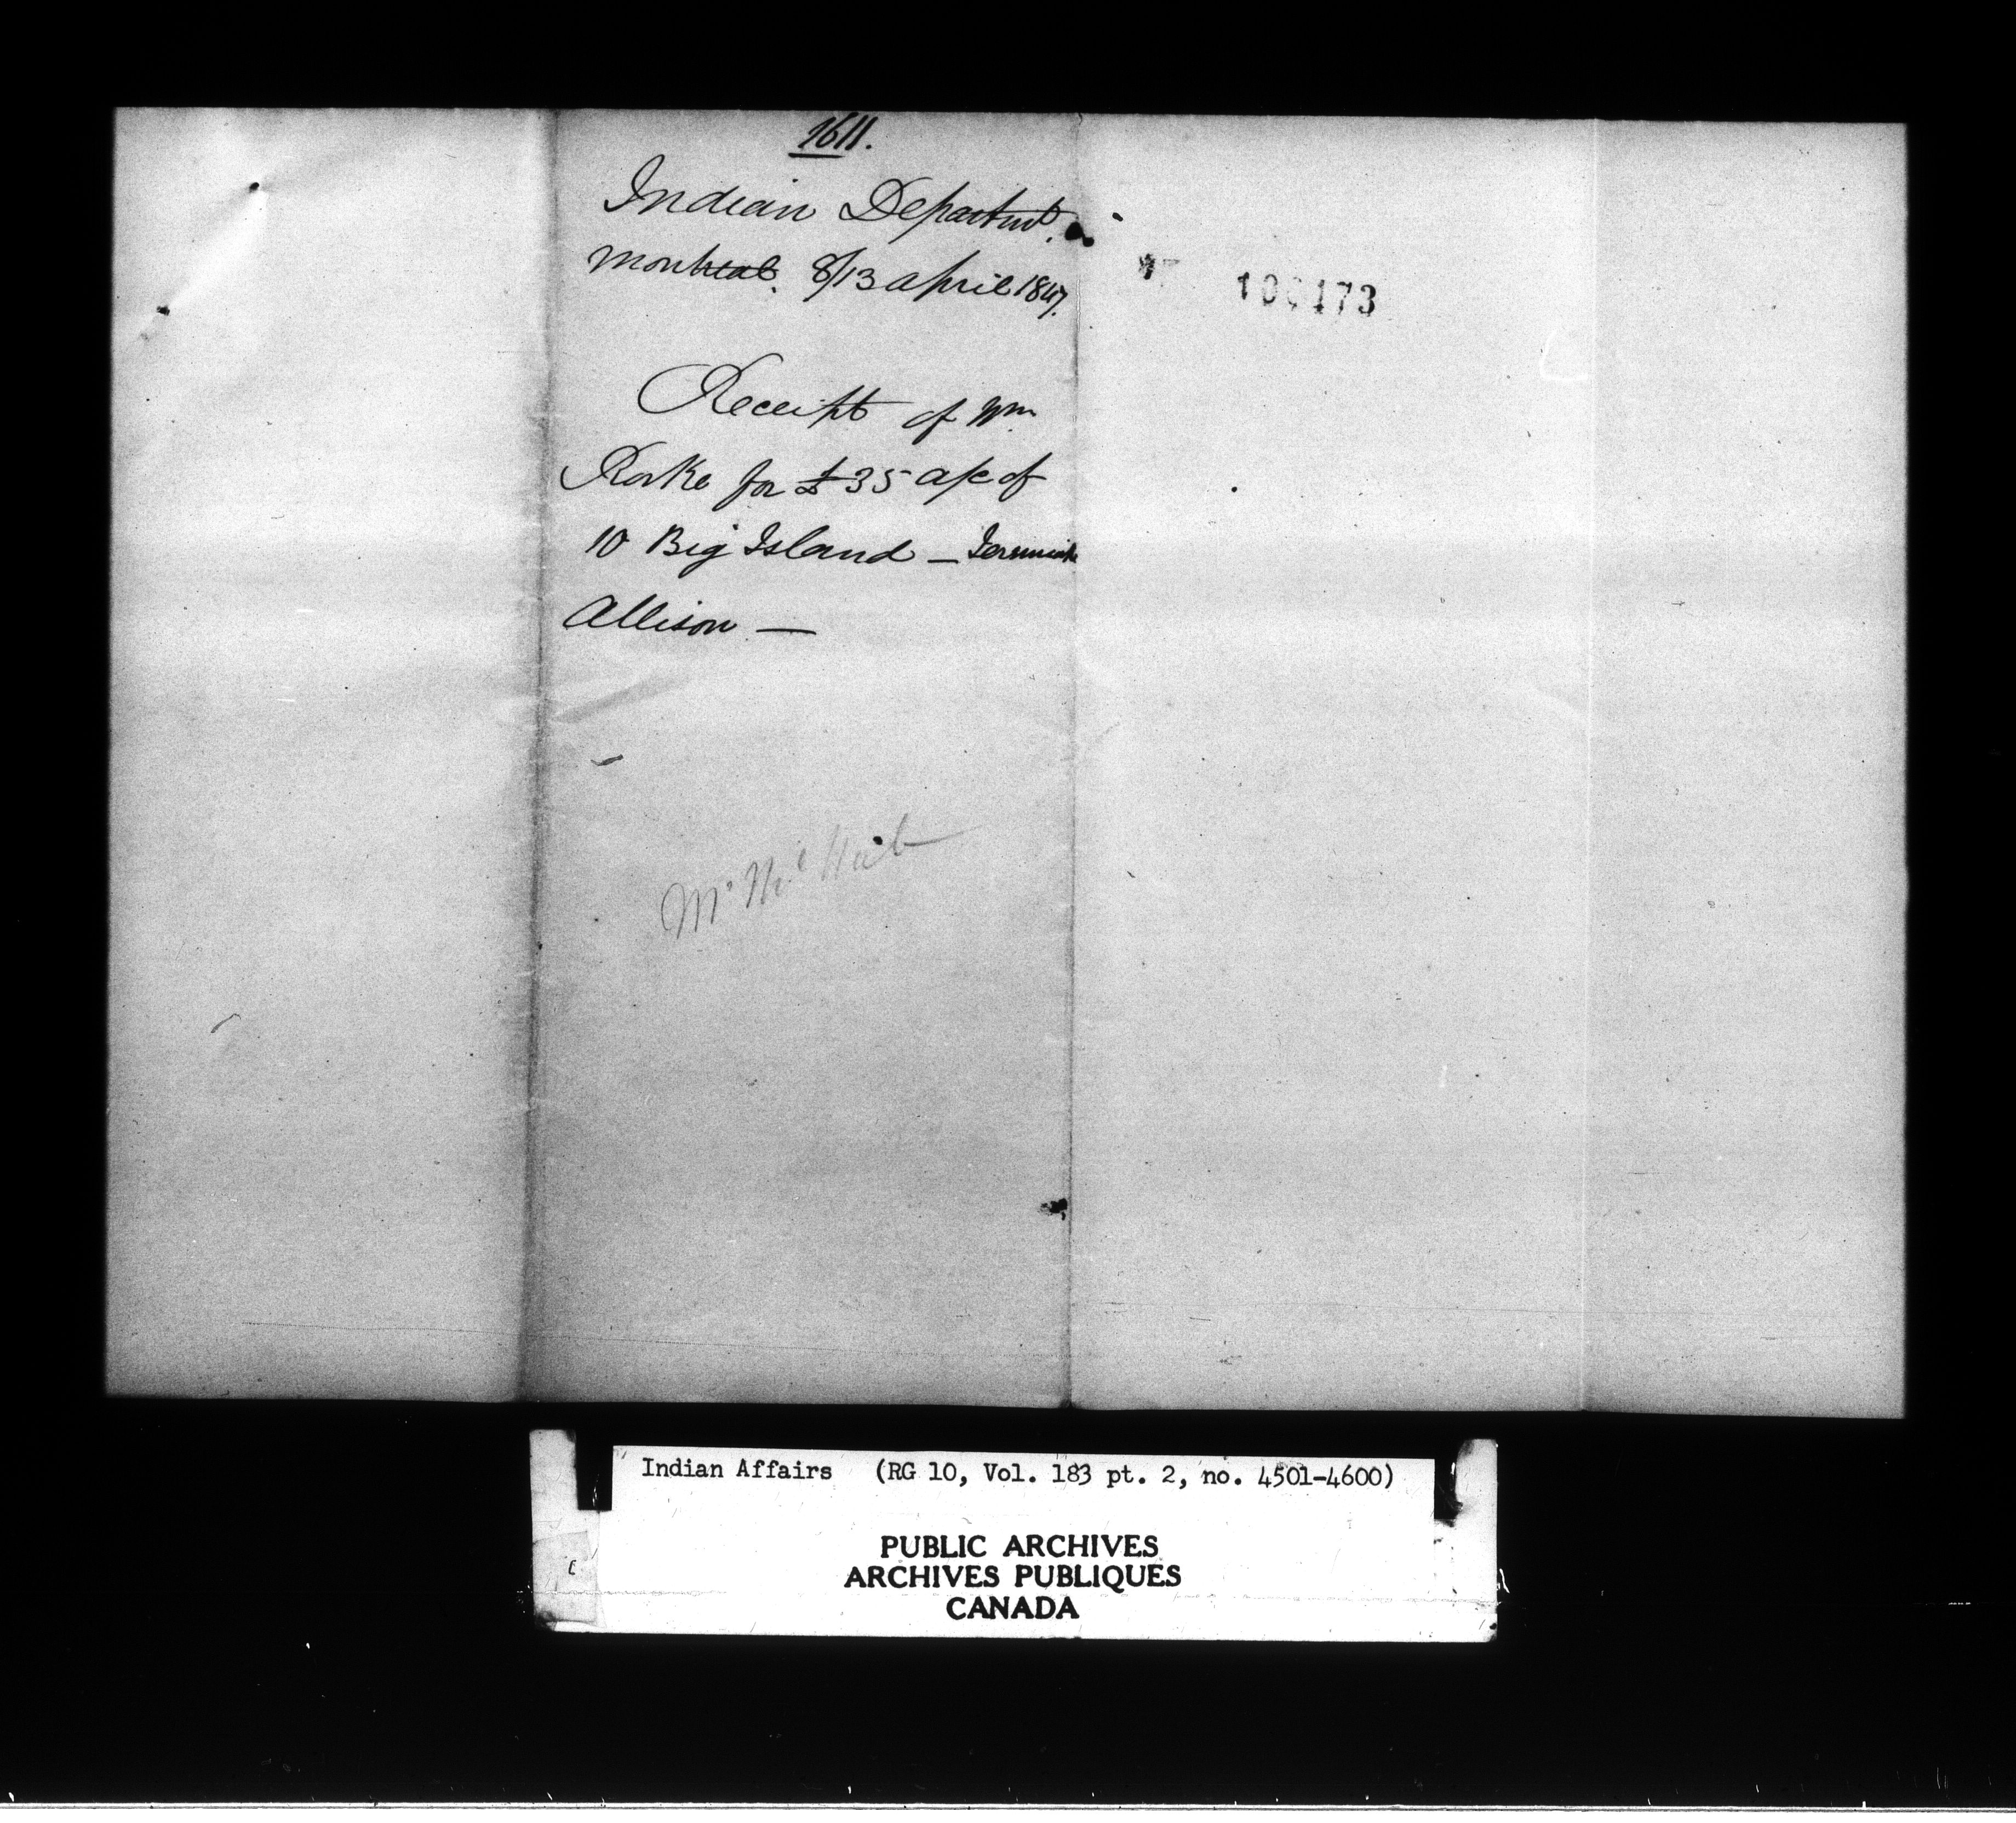 1611.
Indian Departmt.
Montreal. 8/13 April 1847.
Receipt of Wm
Rorke for £35 a/c of
10 Big Island — Jeremiah
Allison —
Mr Mc
173
Indian Affairs (RG 10, Vol. 183 pt. 2, no. 4501-4600)
PUBLIC ARCHIVES
ARCHIVES PUBLIQUES
CANADA